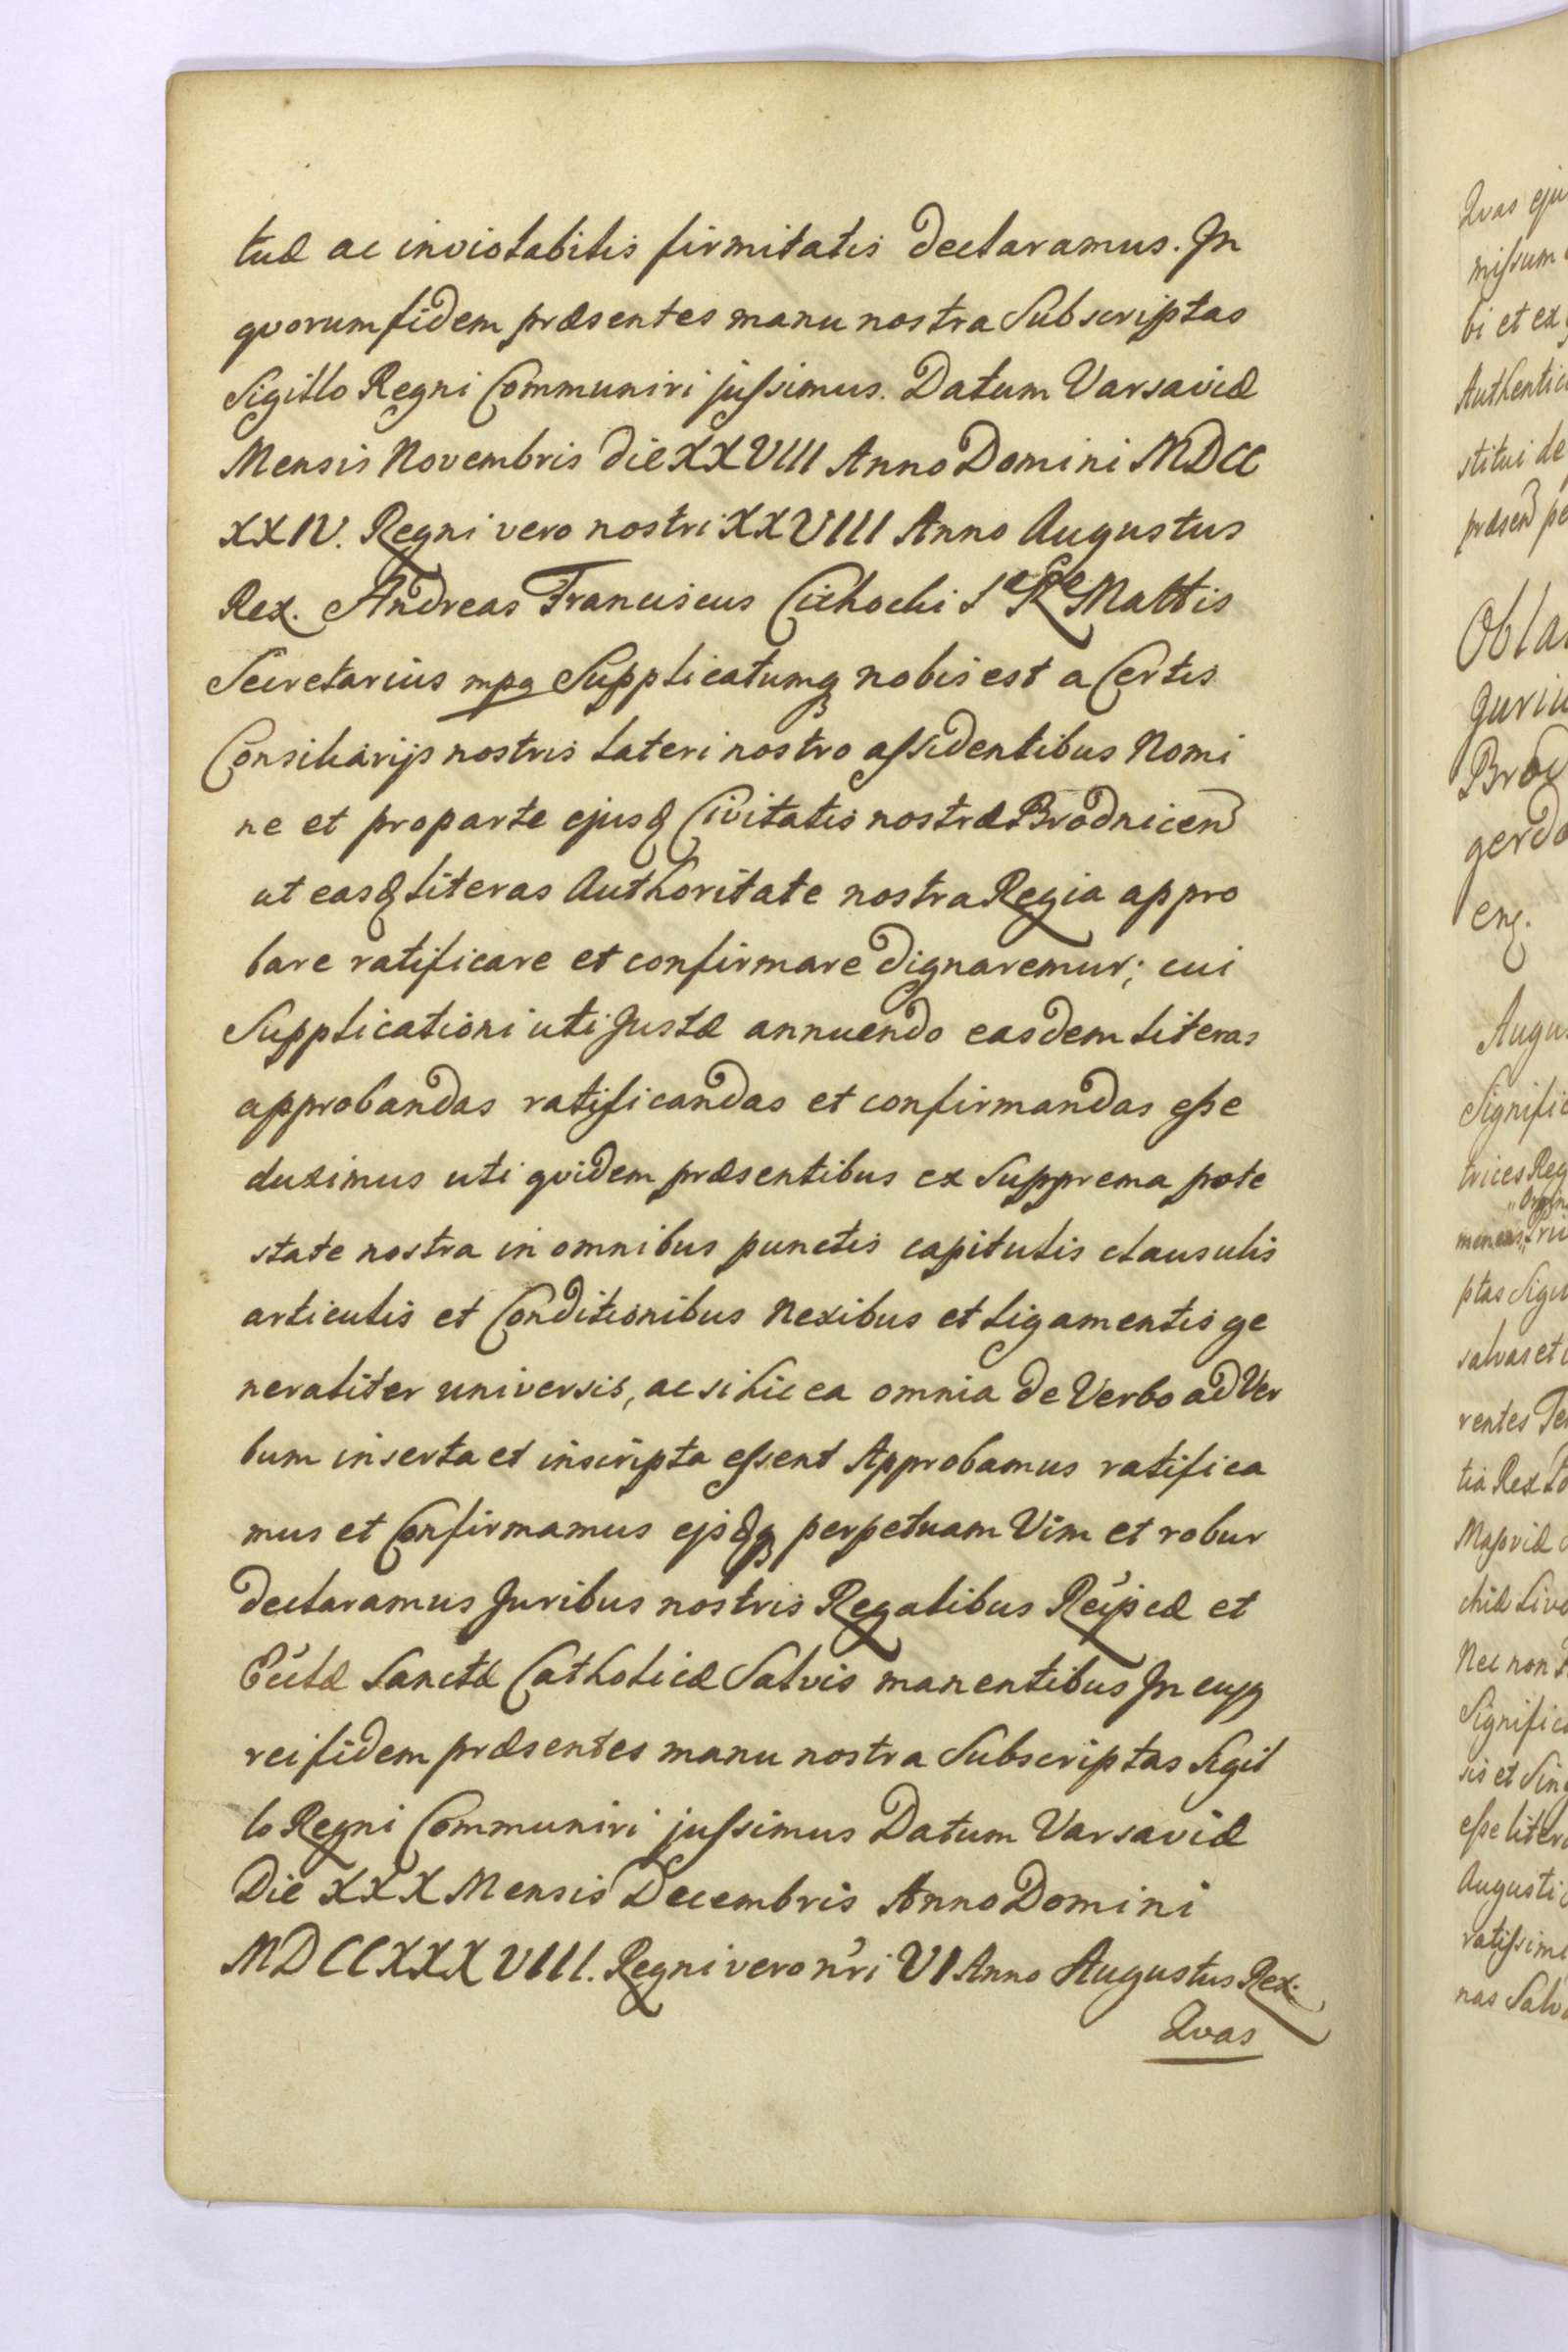 tuæ ac inviolabilis firmitatis declaramus. In
qvorum fidem præsentes manu nostra Subscriptas
Sigillo Regni Communiri juſsimus. Datum Varsaviæ
Mensis Novembris die XXVIII Anno Domini MDCC
XXIV. Regni vero nostri XXVIII Anno Augustus
Rex. Andreas Franciscus Cichocki S R Mattis
Secretarius mpa Supplicatumq nobis est a Certis
Consiliarijs nostris lateri nostro aſsidentibus Nomi
ne et pro parte ejusd Civitatis nostræ Brodnicen
ut easd literas Authoritate nostra Regia appro
bare ratificare et confirmare dignaremur; cui
Supplicationi uti Justæ annuendo easdem literas
approbandas ratificandas et confirmandas eſse
duximus uti qvidem præsentibus ex Supprema pote
state nostra in omnibus punctis capitulis clausulis
articulis et Conditionibus Nexibus et ligamentis ge
neraliter universis, ac si hic ea omnia de Verbo ad Ver
bum inserta et inscripta eſsent Approbamus ratifica
mus et Confirmamus ejsdq perpetuam Vim et robur
declaramus Juribus nostris Regalibus Reipcæ et
Ecclæ Sanctæ Catholicæ Salvis manentibus In cujq
rei fidem præsentes manu nostra Subscriptas Sigil
lo Regni Communiri juſsimus Datum Varsaviæ
Die XXX Mensis Decembris Anno Domini
MDCCXXXVIII. Regni vero nri VI Anno Augustus Rex.
Qvas
Qvas eju
miſsum
bi et ex
Authentic
stitui de
præsen pe
Obla
Juriu
Brod
gerdo
enſ.
Augu
Signific
trices Reg
ptas Sigi
salvas et
rentes Te
tia Rex
Maſoviæ
chiæ Livo
Nec non
Signific
sis et Sing
eſse liter
Augusti
ratiſsim
nas Salv